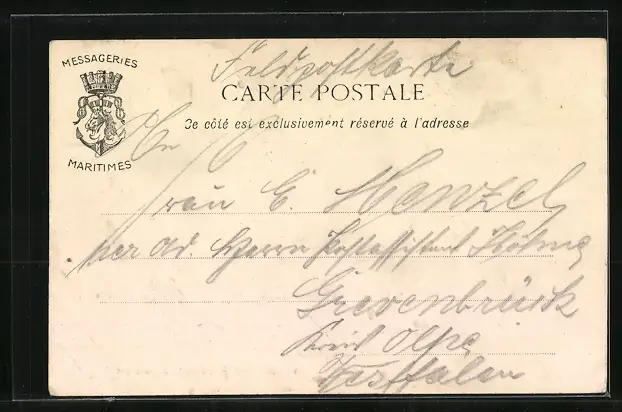 MESSAGERIES
MARITIMES
Feldpostkarte
CARTE POSTALE
Ce côté est exclusivement réservé à l'adresse
An
Frau E. Henzel
per Ad. Herrn Postassistent
Grevenbrück
Kreis Olpe
Westfalen